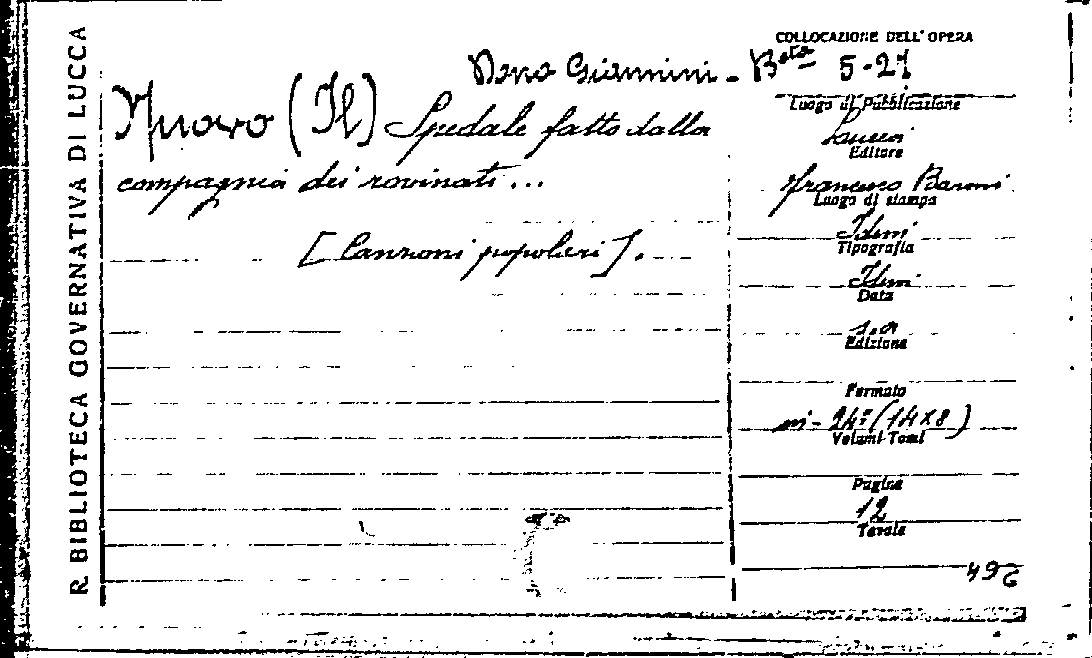 R. BIBLIOTECA GOVERNATIVA DI LUCCA
COLLOCAZIONE DELL'OPERA
Dono Giannini - Bta 5-27
Nuovo (Il) Spedale fatto dalla
compagnia dei rovinati...
[Canzoni popolari].
Luogo di Pubblicazione
Lucca
Editore
Francesco Baroni
Luogo di stampa
Idem
Tipografia
Idem
Data
s.a
Edizione
Formato
in-24º (14x8)
Volumi-Tomi
Pagine
12
Tavole
496